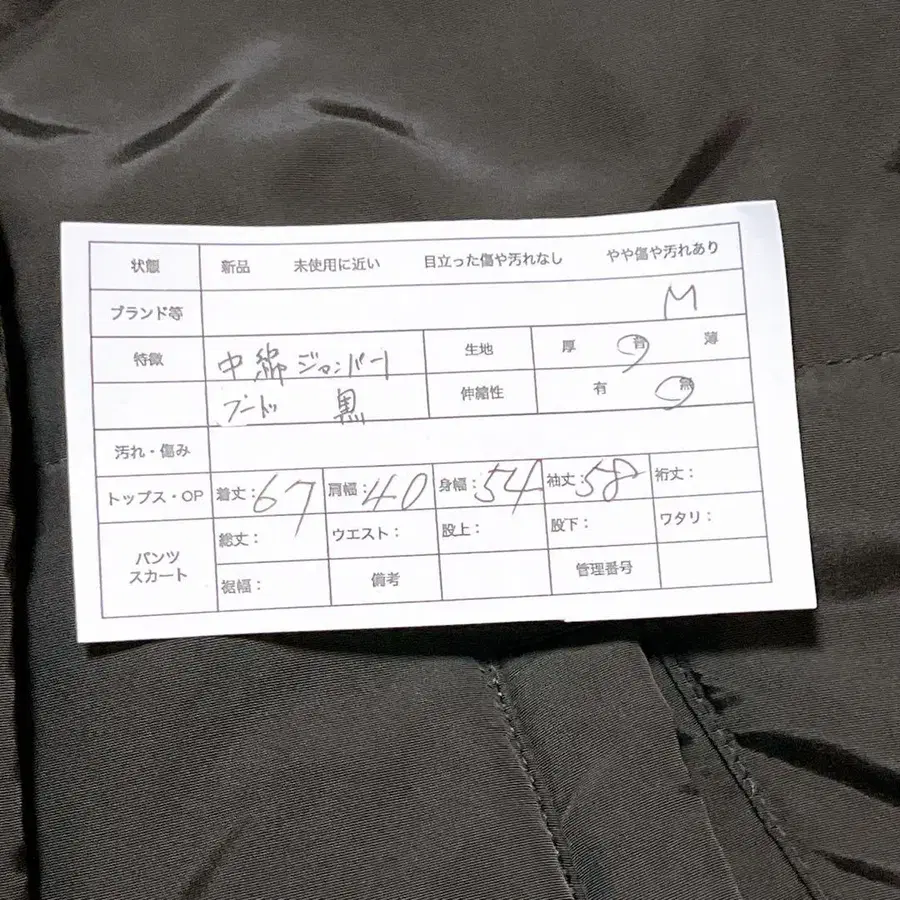 状態 新品 未使用に近い 目立った傷や汚れなし やや傷や汚れあり
ブランド等 M
特徴 中綿ジャンバー 生地 厚 普 薄
フード 黒 伸縮性 有 無
汚れ・傷み
トップス・OP 着丈:67 肩幅:40 身幅:54 袖丈:58 裄丈:
パンツ スカート 総丈: ウエスト: 股上: 股下: ワタリ:
裾幅: 備考 管理番号